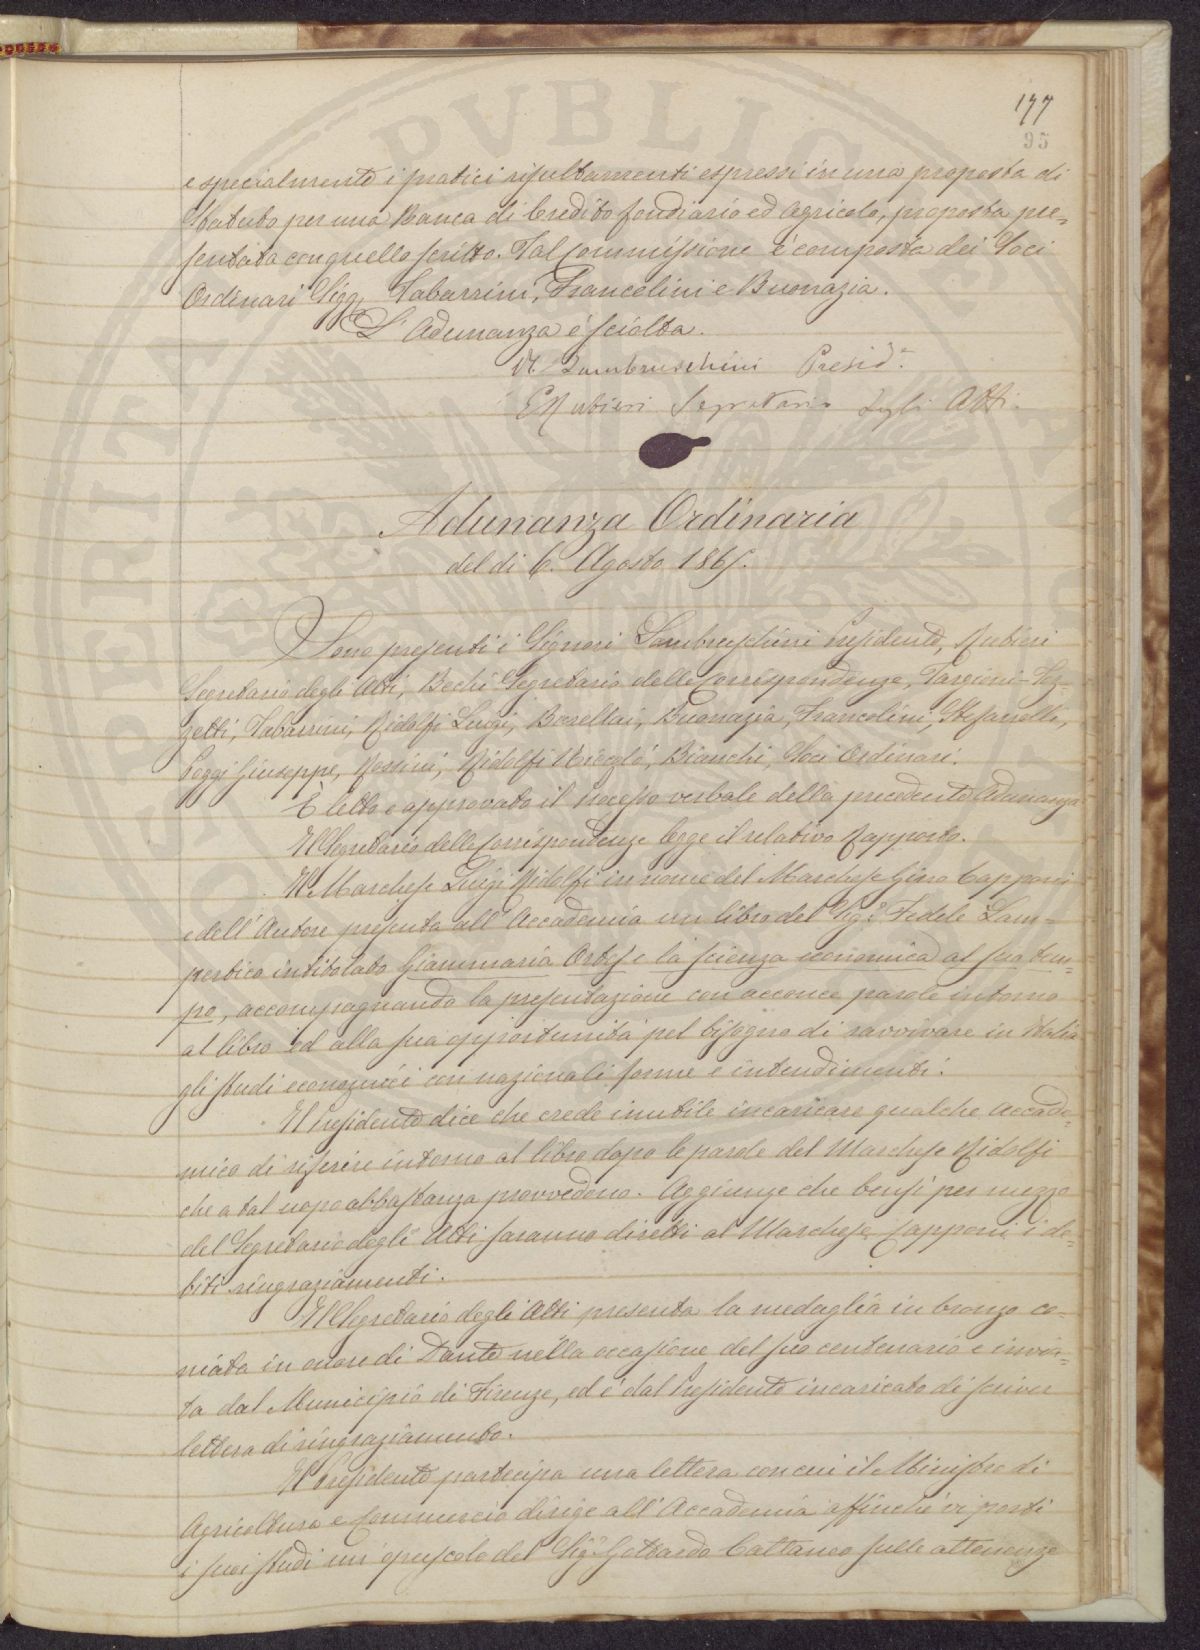 177
95
e specialmente i pratici resultamenti espressi in una proposta di
Statuto per una Banca di Credito fondiario ed Agricolo, proposta pre=
sentata con quello scritto. Tal Commissione è composta dei Soci
Ordinari Sigg. Tabarrini, Francolini e Buonazia.
L'Adunanza è sciolta.
R. Lambruschini Presid.e
E Rubieri Segretario degli Atti.
Adunanza Ordinaria
del di 6. Agosto 1865.
Sono presenti i Signori Lambruschini Presidente, Rubieri
Segretario degli Atti, Bechi Segretario delle Corrispondenze, Targioni-Toz=
zetti, Tabarrini, Ridolfi Luigi, Buonazia, Francolini, Stefanelli,
Poggi Giuseppe, Rossini, Ridolfi Niccolò, Bianchi, Soci Ordinari.
È letto e approvato il processo verbale della precedente Adunanza.
Il Segretario delle Corrispondenze legge il relativo Rapporto.
Il Marchese Luigi Ridolfi in nome del Marchese Gino Capponi
e dell'Autore presenta all'Accademia un libro del Sig.r Fedele Lam=
pertico intitolato Giammaria Ortes e la scienza economica al suo tem=
po, accompagnando la presentazione con acconce parole intorno
al libro ed alla sua opportunità pel bisogno di ravvivare in Italia
gli studi economici con nazionali forme e intendimenti.
Il Presidente dice che crede inutile incaricare qualche Accade=
mico di riferire intorno al libro dopo le parole del Marchese Ridolfi
che a tal uopo abbastanza provvedono. Aggiunge che bensì per mezzo
del Segretario degli Atti saranno diretti al Marchese Capponi i de=
biti ringraziamenti.
Il Segretario degli Atti presenta la medaglia in bronzo co=
niata in onore di Dante nella occasione del suo centenario e invia=
ta dal Municipio di Firenze, ed è dal Presidente incaricato di scriver
lettera di ringraziamento.
Il Presidente partecipa una lettera con cui il Ministro di
Agricoltura e Commercio dirige all'Accademia affinchè vi porti
i suoi studi un opuscolo del Sig.r Gottardo Cattaneo sulle attenenze